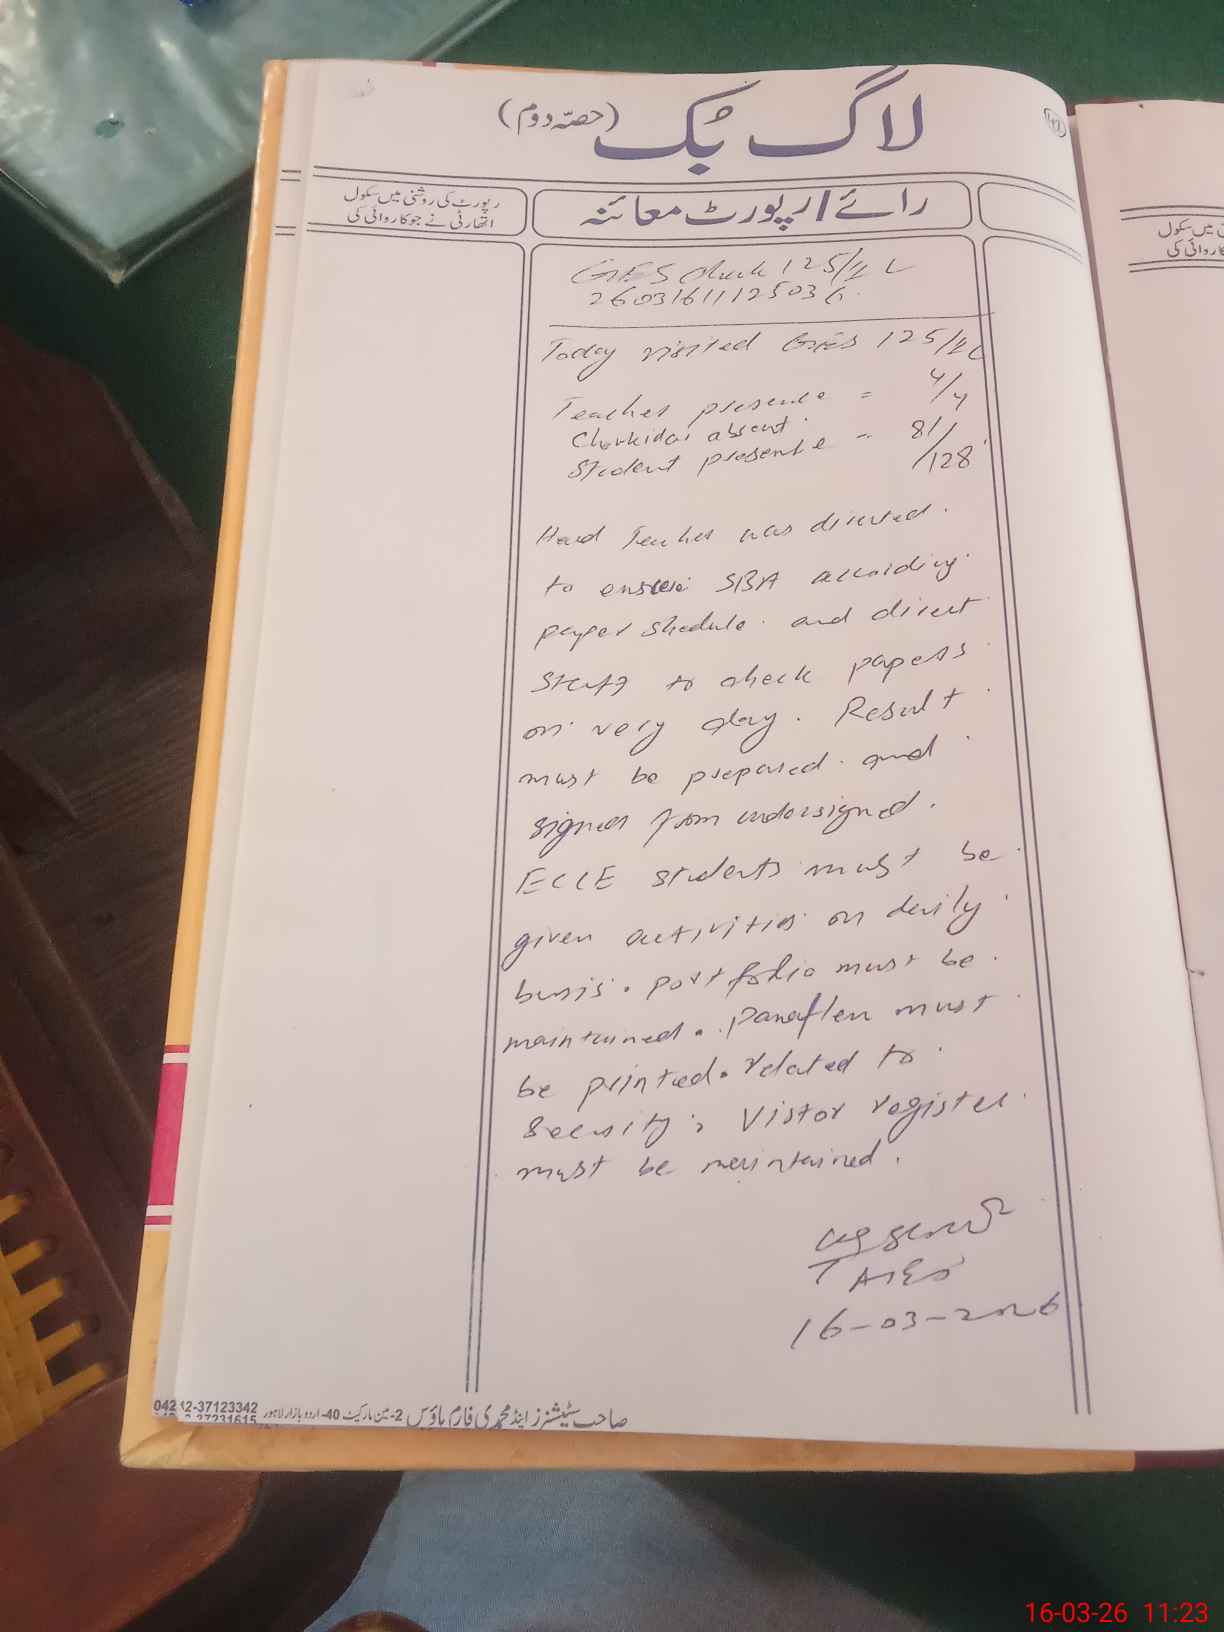 لاگ بُک (حصّہ دوم)
رپورٹ کی روشنی میں سکول
اتھارٹی نے جو کاروائی کی
رائے/رپورٹ معائنہ
GES Chak 125/
Today visited GES 125/
Teacher presente = 4/4
Chokidar absent.
Student presente = 81/128
Head Teacher was directed.
to ensure SBA according
paper shedule. and direct
staff to check papers
on very day. Result
must be prepared. and
signed from undersigned.
ECCE students must be
given activities on daily
basis. portfolio must be
maintained. Panaflex must
be printed. related to
Security, Vistor register
must be maintained.
AEO
16-03-2026
042-37123342
صاحب سٹیشنرز اینڈ محمدی فارم ہاؤس 2-مین مارکیٹ 40-اردو بازار لاہور
میں سکول
کاروائی کی
16-03-26 11:23